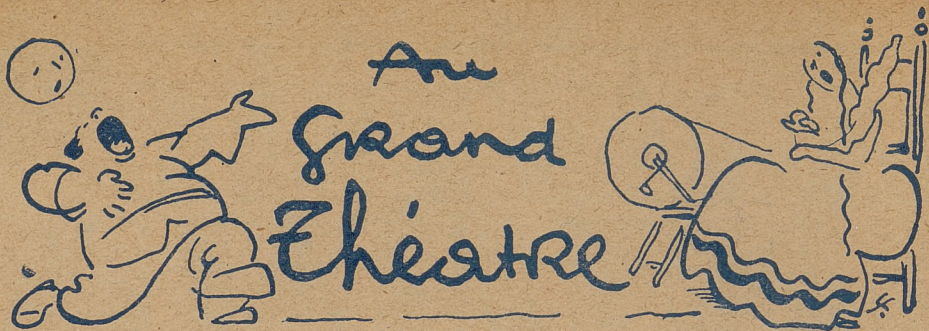 Au
Grand
Théatre